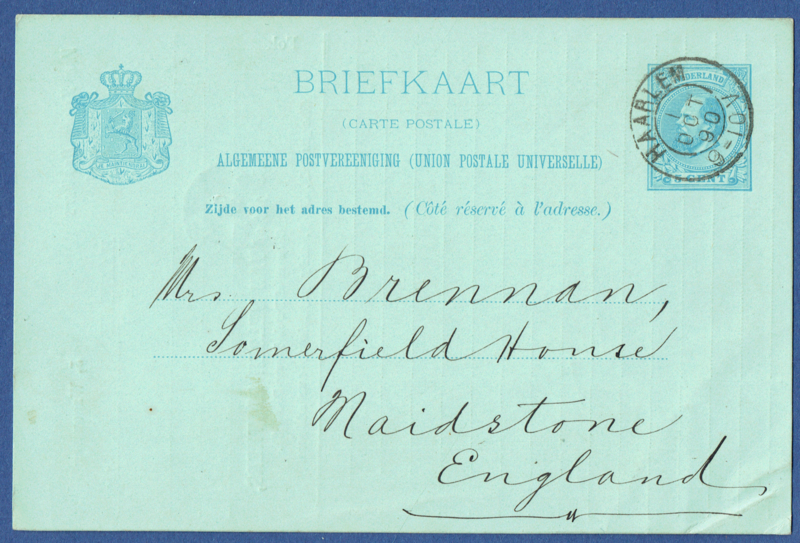 BRIEFKAART
(CARTE POSTALE)
ALGEMEENE POSTVEREENIGING (UNION POSTALE UNIVERSELLE)
Zijde voor het adres bestemd. (Côté réservé à l'adresse.)
NEDERLAND
5 CENT
HAARLEM
1 OCT
90
9-10V
Mrs. Brennan,
Somerfield House
Maidstone
England